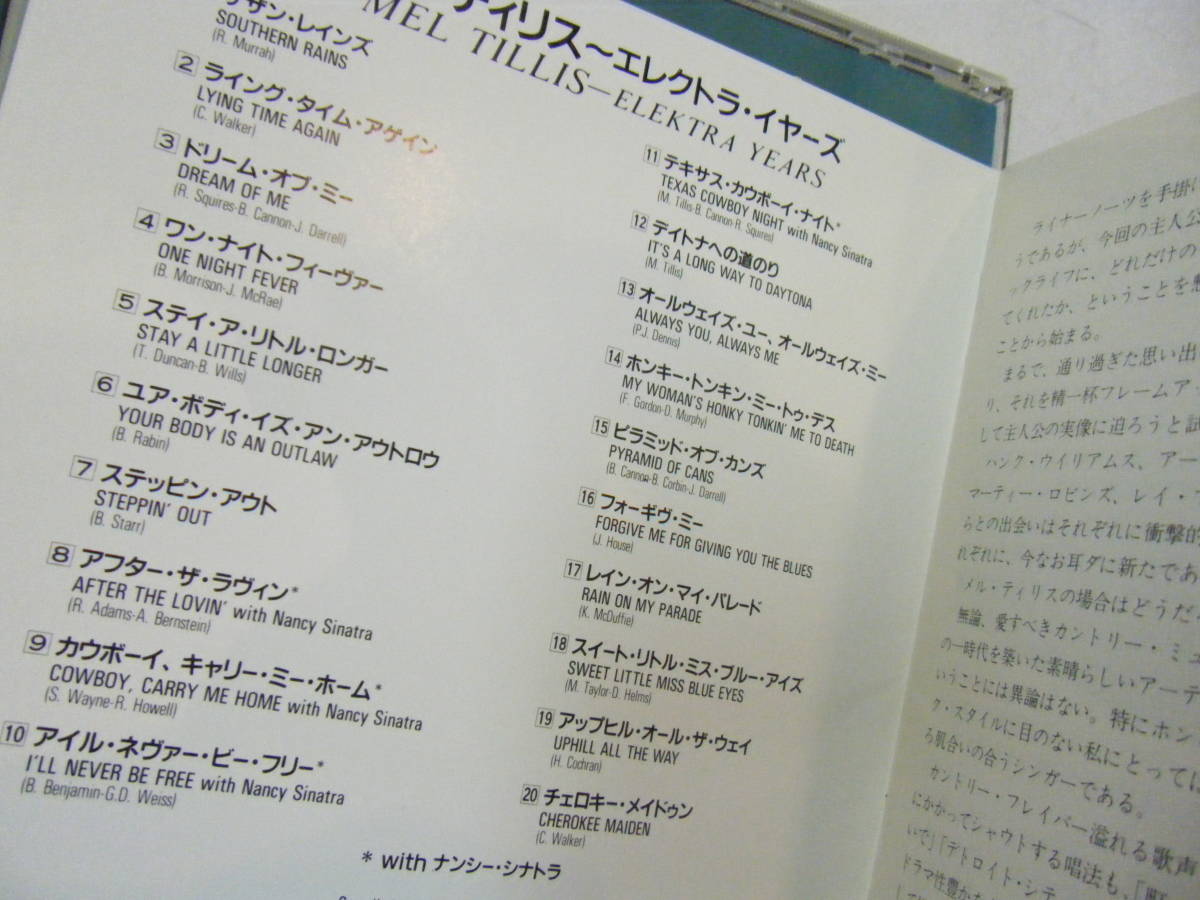 ティリス〜エレクトラ・イヤーズ
MEL TILLIS—ELEKTRA YEARS
サザン・レインズ
SOUTHERN RAINS
(R. Murrah)
2 ライング・タイム・アゲイン
LYING TIME AGAIN
(C. Walker)
3 ドリーム・オブ・ミー
DREAM OF ME
(R. Squires-B. Cannon-J. Darrell)
4 ワン・ナイト・フィーヴァー
ONE NIGHT FEVER
(B. Morrison-J. McRae)
5 ステイ・ア・リトル・ロンガー
STAY A LITTLE LONGER
(T. Duncan-B. Wills)
6 ユア・ボディ・イズ・アン・アウトロウ
YOUR BODY IS AN OUTLAW
(B. Rabin)
7 ステッピン・アウト
STEPPIN' OUT
(B. Starr)
8 アフター・ザ・ラヴィン*
AFTER THE LOVIN' with Nancy Sinatra
(R. Adams-A. Bernstein)
9 カウボーイ、キャリー・ミー・ホーム*
COWBOY, CARRY ME HOME with Nancy Sinatra
(S. Wayne-R. Howell)
10 アイル・ネヴァー・ビー・フリー*
I'LL NEVER BE FREE with Nancy Sinatra
(B. Benjamin-G.D. Weiss)
11 テキサス・カウボーイ・ナイト*
TEXAS COWBOY NIGHT with Nancy Sinatra
(M. Tillis-B. Cannon-R. Squires)
12 デイトナへの道のり
IT'S A LONG WAY TO DAYTONA
(M. Tillis)
13 オールウェイズ・ユー、オールウェイズ・ミー
ALWAYS YOU, ALWAYS ME
(P.J. Dennis)
14 ホンキー・トンキン・ミー・トゥ・デス
MY WOMAN'S HONKY TONKIN' ME TO DEATH
(F. Gordon-D. Murphy)
15 ピラミッド・オブ・カンズ
PYRAMID OF CANS
(B. Cannon-B. Corbin-J. Darrell)
16 フォーギヴ・ミー
FORGIVE ME FOR GIVING YOU THE BLUES
(J. House)
17 レイン・オン・マイ・パレード
RAIN ON MY PARADE
(K. McDuffie)
18 スイート・リトル・ミス・ブルー・アイズ
SWEET LITTLE MISS BLUE EYES
(M. Taylor-D. Helms)
19 アップヒル・オール・ザ・ウェイ
UPHILL ALL THE WAY
(H. Cochran)
20 チェロキー・メイドゥン
CHEROKEE MAIDEN
(C. Walker)
* with ナンシー・シナトラ
ライナーノーツを手掛け
うであるが、今回の主人公
ックライフに、どれだけの
てくれたか、ということを
ことから始まる。
まるで、通り過ぎた思い出
り、それを精一杯フレームア
して主人公の実像に迫ろうと試
ハンク・ウイリアムス、アー
マーティー・ロビンズ、レイ・
らとの出会いはそれぞれに衝撃的
れぞれに、今なお耳ダに新たであ
メル・ティリスの場合はどうだ
無論、愛すべきカントリー・ミュ
の一時代を築いた素晴らしいアーテ
いうことには異論はない。特にホン
ク・スタイルに目のない私にとっては
ろ肌合いの合うシンガーである。
カントリー・フレイバー溢れる歌声
にかかってシャウトする唱法も、「
いで」「デトロイト・シテ
ドラマ性豊かな